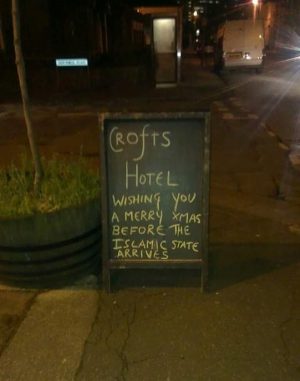 CROFTS
HOTEL
WISHING YOU
A MERRY XMAS
BEFORE THE
ISLAMIC STATE
ARRIVES